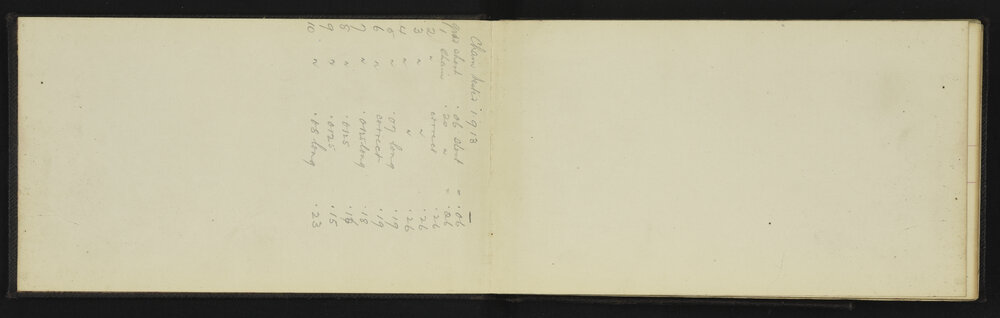 Chain 1913
short .06 short " .06
1 chain .20 " " .26
2 " correct .26
3 " " .26
4 " " .26
5 " .07 long .19
6 " correct .19
7 " .0125 long .18
8 " .0125 .16
9 " .0125 .15
10 " .08 long .23